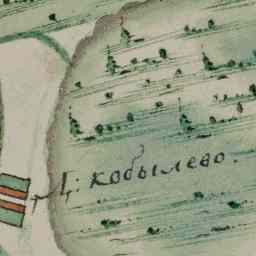 Д: кобылево.